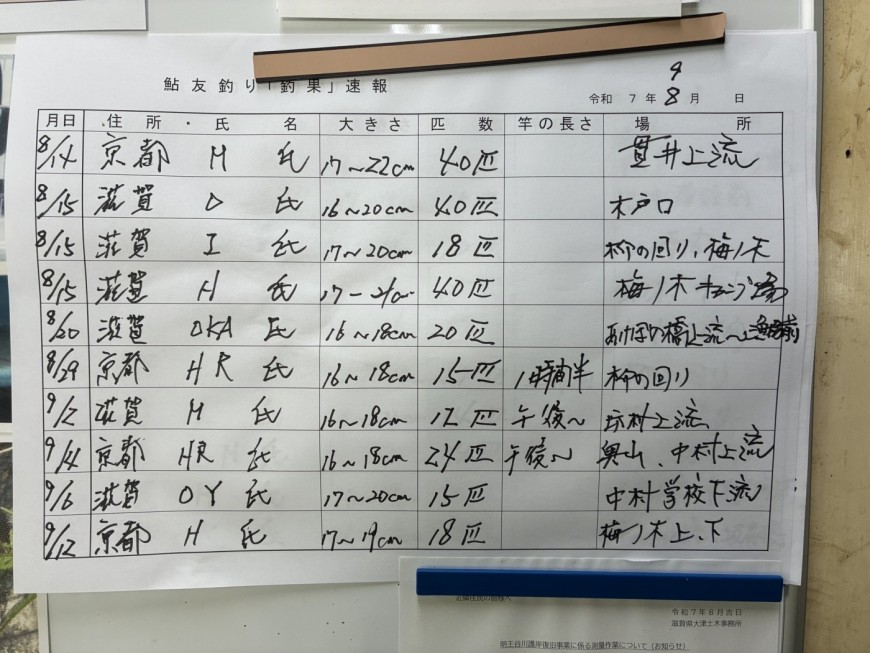 鮎友釣り「釣果」速報
9
令和 7年 8月 日
月日 住所・氏名 大きさ 匹数 竿の長さ 場所
8/14 京都 M 氏 17~22cm 40匹 貫井上流
8/15 滋賀 O 氏 16~20cm 40匹 木戸口
8/15 滋賀 I 氏 17~20cm 18匹 柳の回り、梅ノ木
8/15 滋賀 H 氏 17-21cm 40匹 梅ノ木
8/20 滋賀 OKA 氏 16~18cm 20匹 あけぼの橋上流~
8/29 京都 HR 氏 16~18cm 15匹 1時間半 柳の回り
9/2 滋賀 M 氏 16~18cm 12匹 午後~ 坊村上流
9/4 京都 HR 氏 16~18cm 24匹 午後~ 奥山、中村上流
9/6 滋賀 OY 氏 17~20cm 15匹 中村学校下流
9/12 京都 H 氏 17~19cm 18匹 梅ノ木上、下
令和7年8月吉日
滋賀県大津土木事務所
明王谷川護岸復旧事業に係る測量作業について(お知らせ)